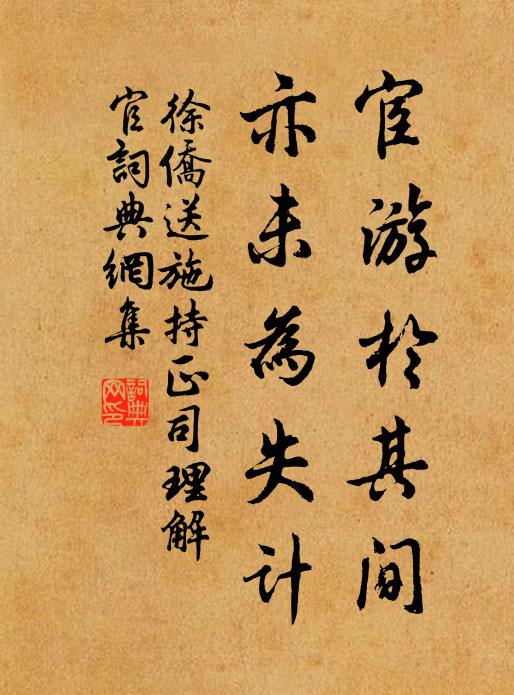 宦游於其間
亦未為失計
徐僑送施持正司理解
官詞典網集
詞典網印